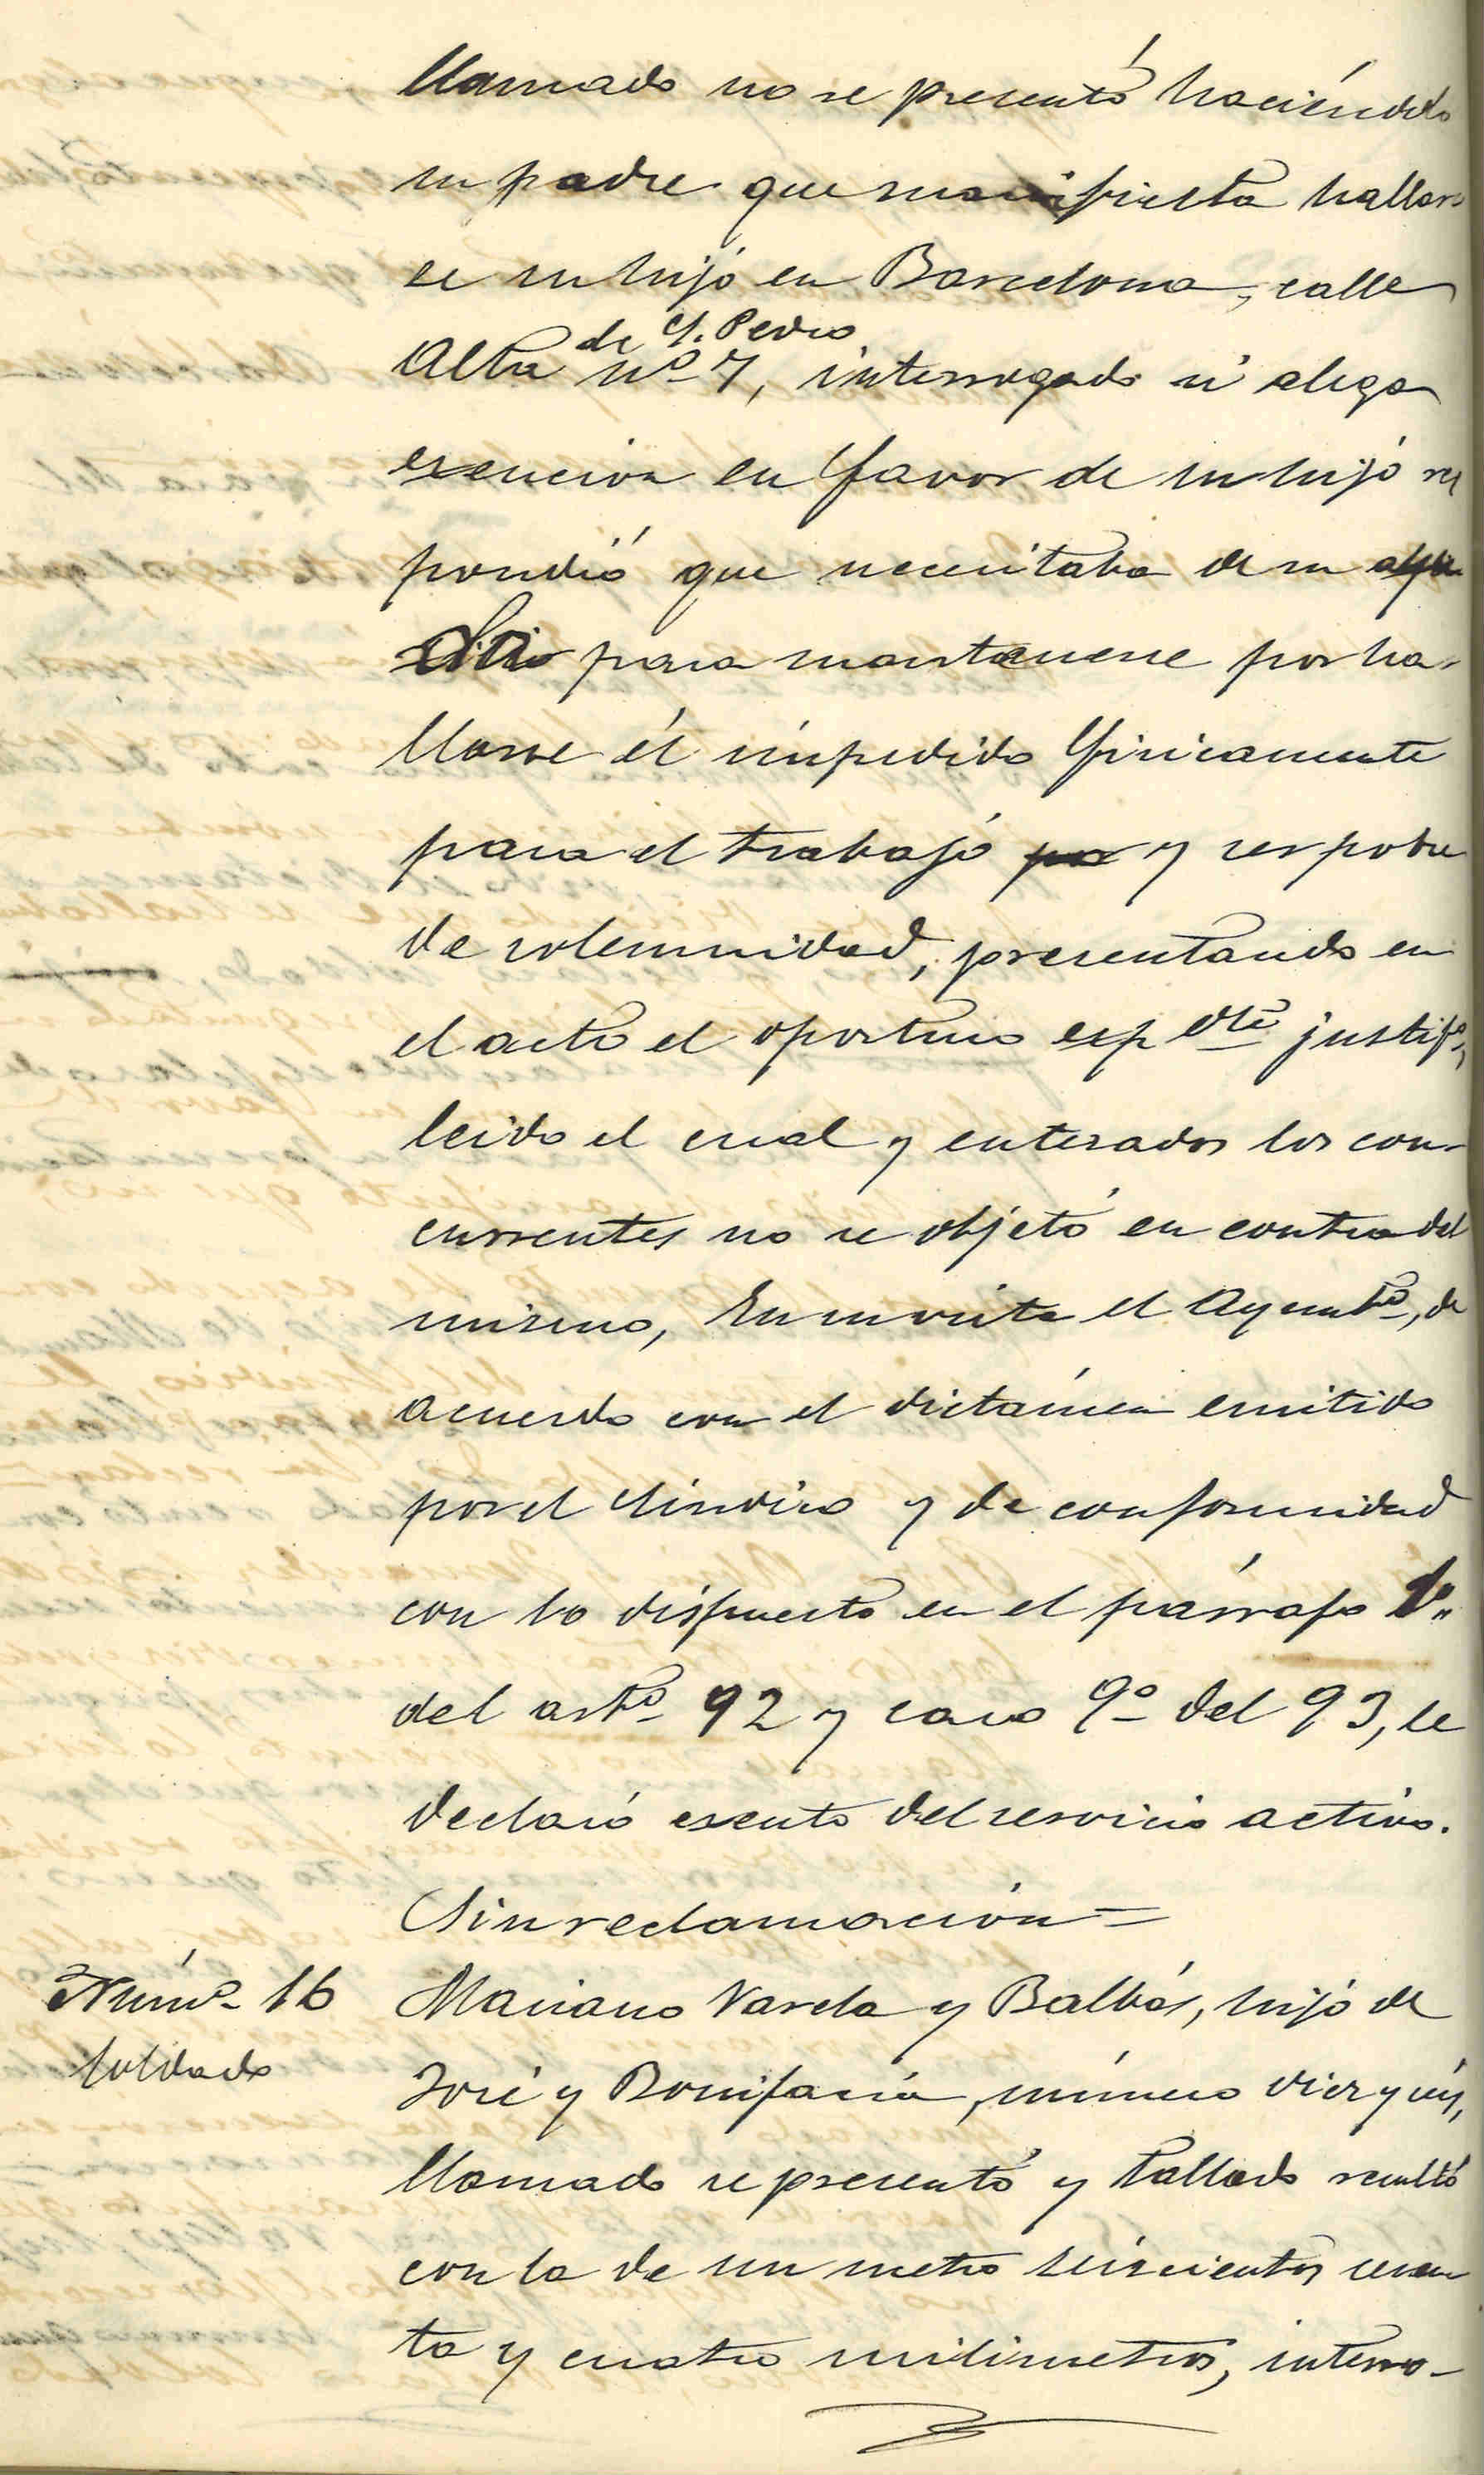 llamado no se presentó haciéndolo
su padre que manifiesta hallar
se su hijo en Barcelona, calle
de S. Pedro
Alta nº 7, interrogado si alega
exencion en favor de su hijo res
pondió que necesitaba de su
para mantenerse por ha-
llarse él impedido fisicamente
para el trabajo y ser pobre
de solemnidad, presentando en
el acto el oportuno expdte justifº,
leido el cual y enterados los con-
currentes no se objetó en contra del
mismo, En su vista el Ayuntº, de
acuerdo con el dictámen emitido
por el Síndico y de conformidad
con lo dispuesto en el párrafo 1º
del artº 92 y caso 9º del 93, le
declaró exento del servicio activo.
Sin reclamación =
Númº 16
Soldado
Mariano Varela y Balbás, hijo de
José y Bonifacia, número diez y seis,
llamado se presentó y tallado resultó
con la de un metro seiscientos sesen
ta y cuatro milímetros, interro-